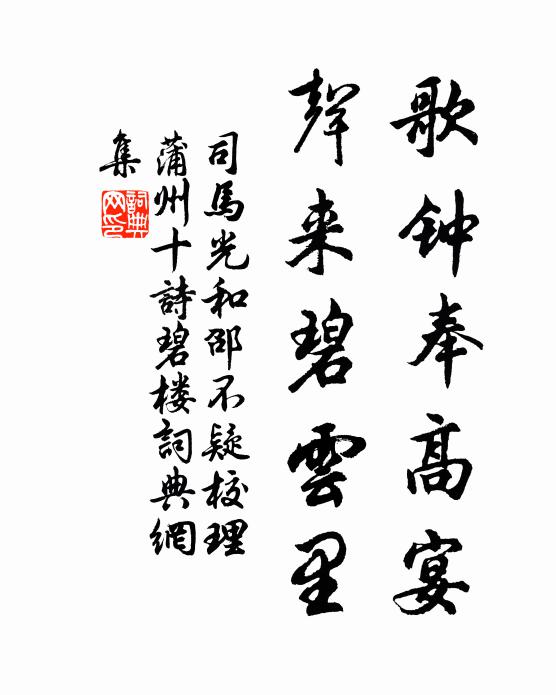 歌钟奉高宴
聲来碧雲里
司馬光和邵不疑校理
蒲州十詩碧楼詞典網
集
詞典網印